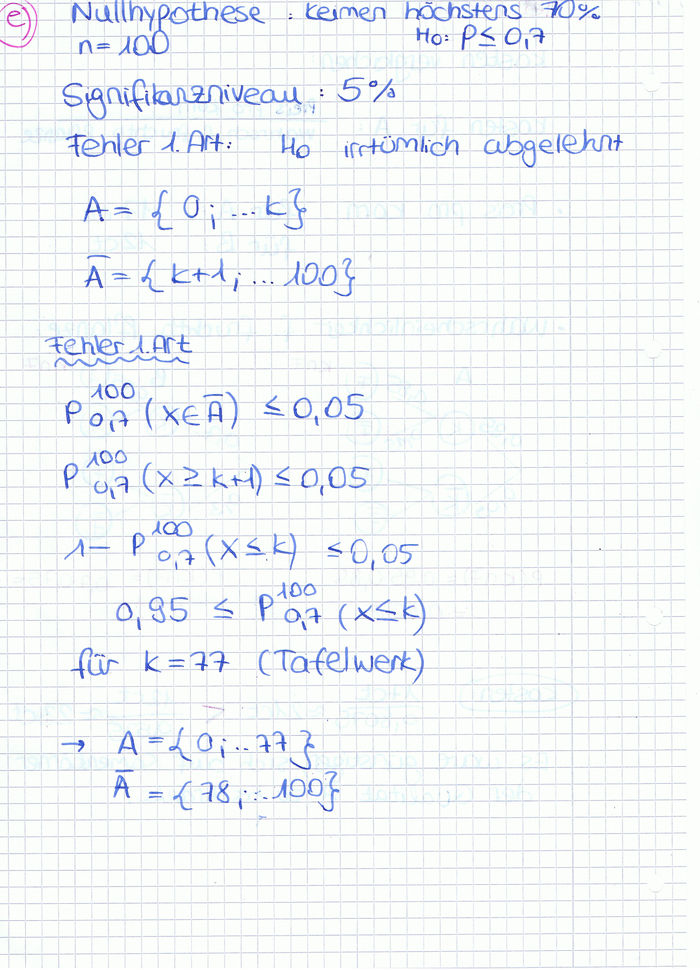 e)
Nullhypothese : keimen höchstens 70%
n = 100 H0: P ≤ 0,7
Signifikanzniveau : 5%
Fehler 1. Art: H0 irrtümlich abgelehnt
A = { 0; ... k}
A̅ = { k+1; ... 100}
Fehler 1. Art
P^100_0,7 (x ∈ A̅) ≤ 0,05
P^100_0,7 (x ≥ k+1) ≤ 0,05
1 − P^100_0,7 (x ≤ k) ≤ 0,05
0,95 ≤ P^100_0,7 (x ≤ k)
für k = 77 (Tafelwerk)
→ A = { 0; .. 77 }
A̅ = { 78; ... 100}